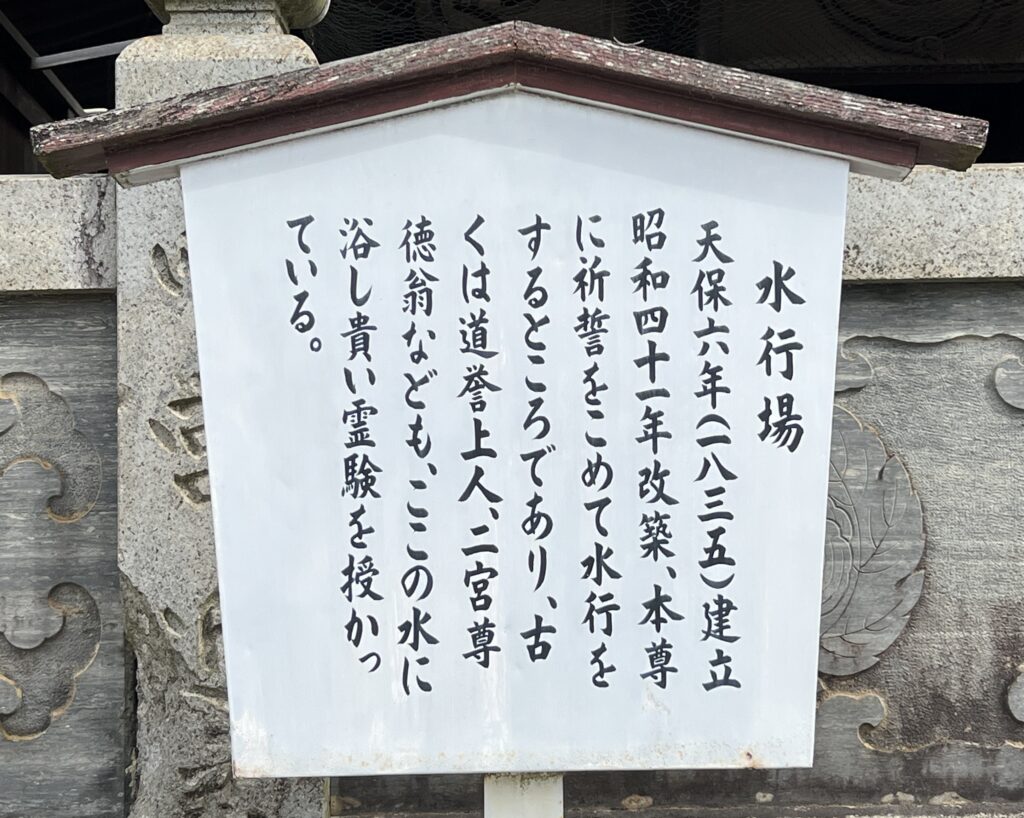 水行場
天保六年(一八三五)建立
昭和四十一年改築、本尊
に祈誓をこめて水行を
するところであり、古
くは道誉上人、二宮尊
徳翁なども、ここの水に
浴し貴い霊験を授かっ
ている。